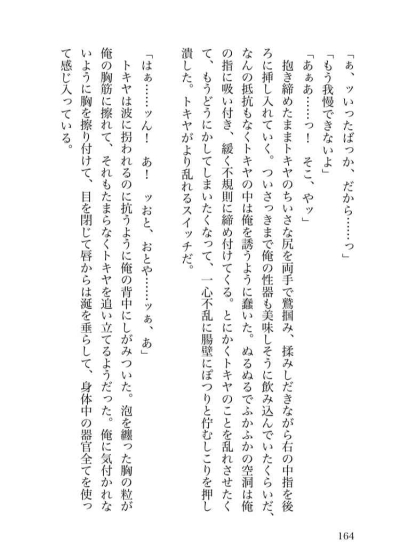 「ぁ、ッいったばっか、だから……っ」
「もう我慢できないよ」
「あぁあ……っ！　そこ、やッ」
抱き締めたままトキヤのちいさな尻を両手で鷲掴み、揉みしだきながら右の中指を後
ろに挿し入れていく。ついさっきまで俺の性器も美味しそうに飲み込んでいたくらいだ、
なんの抵抗もなくトキヤの中は俺を誘うように蠢いた。ぬるぬるでふかふかの空洞は俺
の指に吸い付き、緩く不規則に締め付けてくる。とにかくトキヤのことを乱れさせたく
て、もうどうにかしてしまいたくなって、一心不乱に腸壁にぽつりと佇むしこりを押し
潰した。トキヤがより乱れるスイッチだ。
「はぁ……ッん！　あ！　ッおと、おとや……ッぁ、あ」
トキヤは波に拐われるのに抗うように俺の背中にしがみついた。泡を纏った胸の粒が
俺の胸筋に擦れて、それもたまらなくトキヤを追い立てるようだった。俺に気付かれな
いように胸を擦り付けて、目を閉じて唇からは涎を垂らして、身体中の器官全てを使っ
て感じ入っている。
164